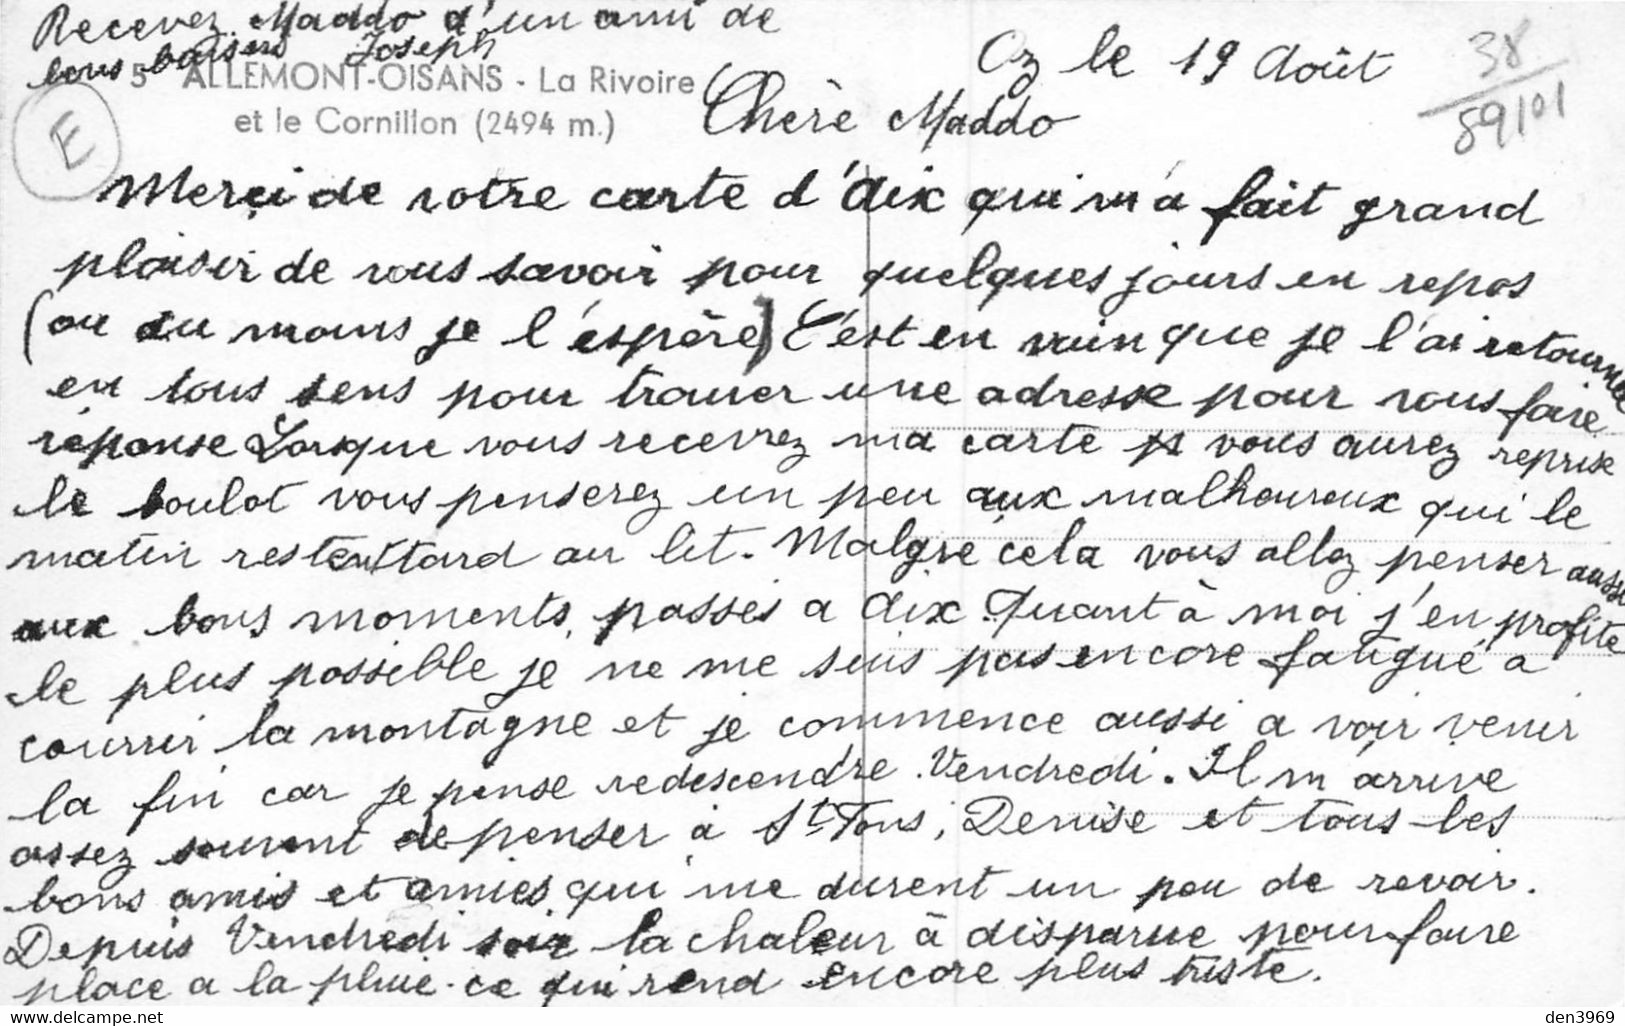 Recevez Maddo d'un ami de
bons baisers Joseph
5 ALLEMONT-OISANS - La Rivoire
et le Cornillon (2494 m.)
Oz le 19 Août
38
89101
E
Chère Maddo
Merci de votre carte d'Aix qui m'a fait grand
plaisir de vous savoir pour quelques jours en repos
(ou du moins je l'espère) C'est en vain que je l'ai retournée
en tous sens pour trouver une adresse pour vous faire
réponse Lorsque vous recevrez ma carte vous aurez reprise
le boulot vous penserez un peu aux malheureux qui le
matin restent tard au lit. Malgré cela vous allez penser aussi
aux bons moments passés a Aix. Quant à moi j'en profite
le plus possible je ne me suis pas encore fatigué a
courrir la montagne et je commence aussi a voir venir
la fin car je pense redescendre Vendredi. Il m'arrive
assez souvent de penser à St Fons, Denise et tous les
bons amis et amies qui me durent un peu de revoir.
Depuis Vendredi soir la chaleur à disparue pour faire
place a la pluie. ce qui rend encore plus triste.
delcampe.net
den3969